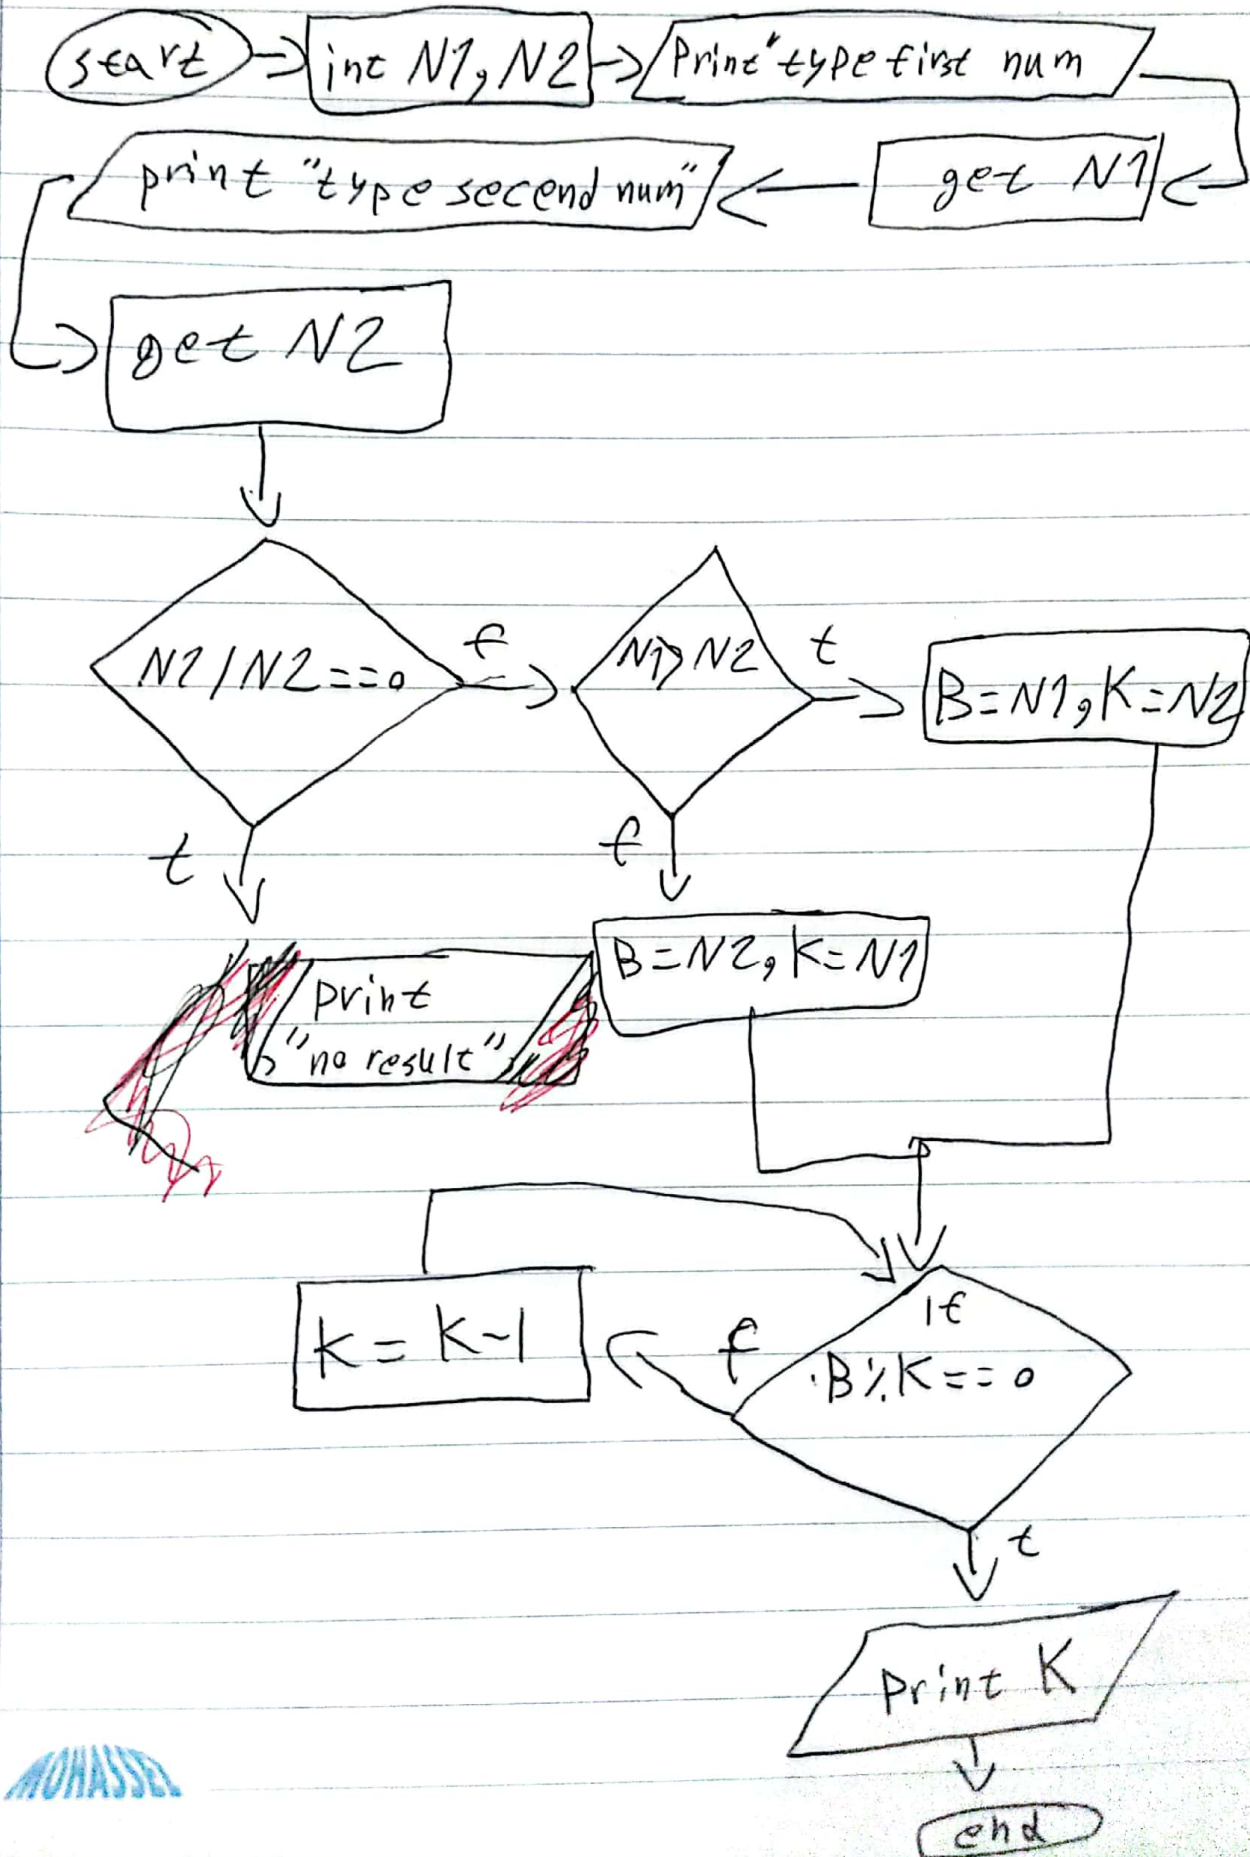 start
int N1, N2
Print "type first num
get N1
print "type secend num"
get N2
N2 / N2 == 0
f
t
N1 > N2
t
f
B = N1, K = N2
print
"no result"
B = N2, K = N1
K = K - 1
f
If
B % K == 0
t
Print K
end
MOHASSEL